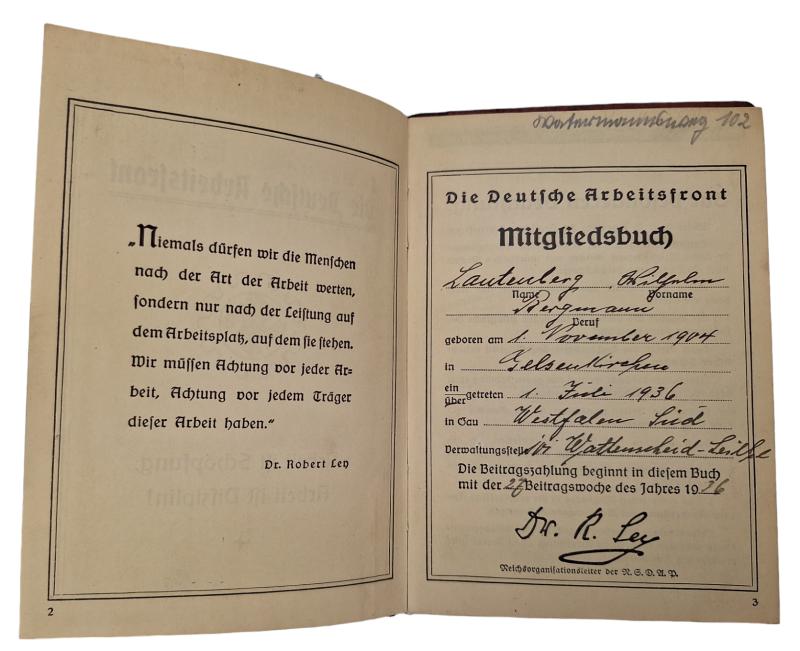 „Niemals dürfen wir die Menschen
nach der Art der Arbeit werten,
sondern nur nach der Leistung auf
dem Arbeitsplatz, auf dem sie stehen.
Wir müssen Achtung vor jeder Ar=
beit, Achtung vor jedem Träger
dieser Arbeit haben.“
Dr. Robert Ley
2
Watermannsweg 102
Die Deutsche Arbeitsfront
Mitgliedsbuch
Lautenberg Wilhelm
Name Vorname
Bergmann
Beruf
geboren am 1. November 1904
in Gelsenkirchen
ein
über getreten 1. Juli 1936
in Gau Westfalen Süd
Verwaltungsstelle Wattenscheid-Leithe
Die Beitragszahlung beginnt in diesem Buch
mit der 27 Beitragswoche des Jahres 1936
Dr. R. Ley
Reichsorganisationsleiter der N.S.D.A.P.
3